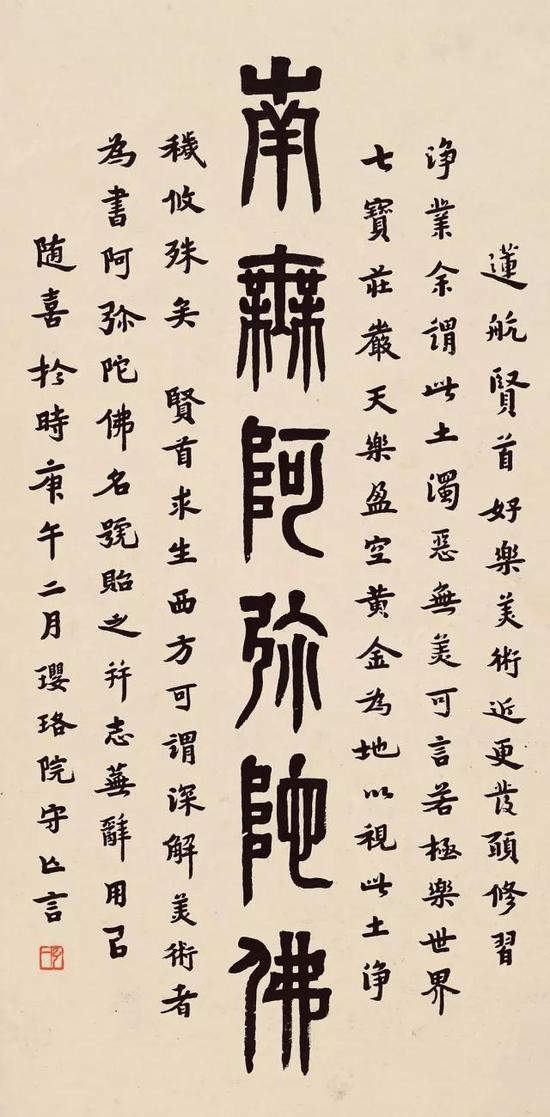 南無阿弥陀佛
蓮航賢首好樂美術近更發願修習
淨業余謂此土濁惡無美可言若極樂世界
七寶莊嚴天樂盈空黃金為地以視此土淨
穢攸殊矣　賢首求生西方可謂深解美術者
為書阿弥陀佛名號貽之并志蕪辭用㠯
随喜於時庚午二月瓔珞院守亡言